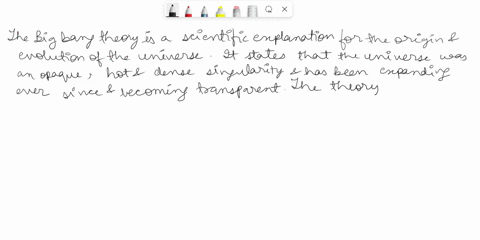 The Big bang theory is a scientific explanation for the origin &
evolution of the universe. It states that the universe was
an opaque, hot & dense singularity & has been expanding
ever since & becoming transparent. The theory